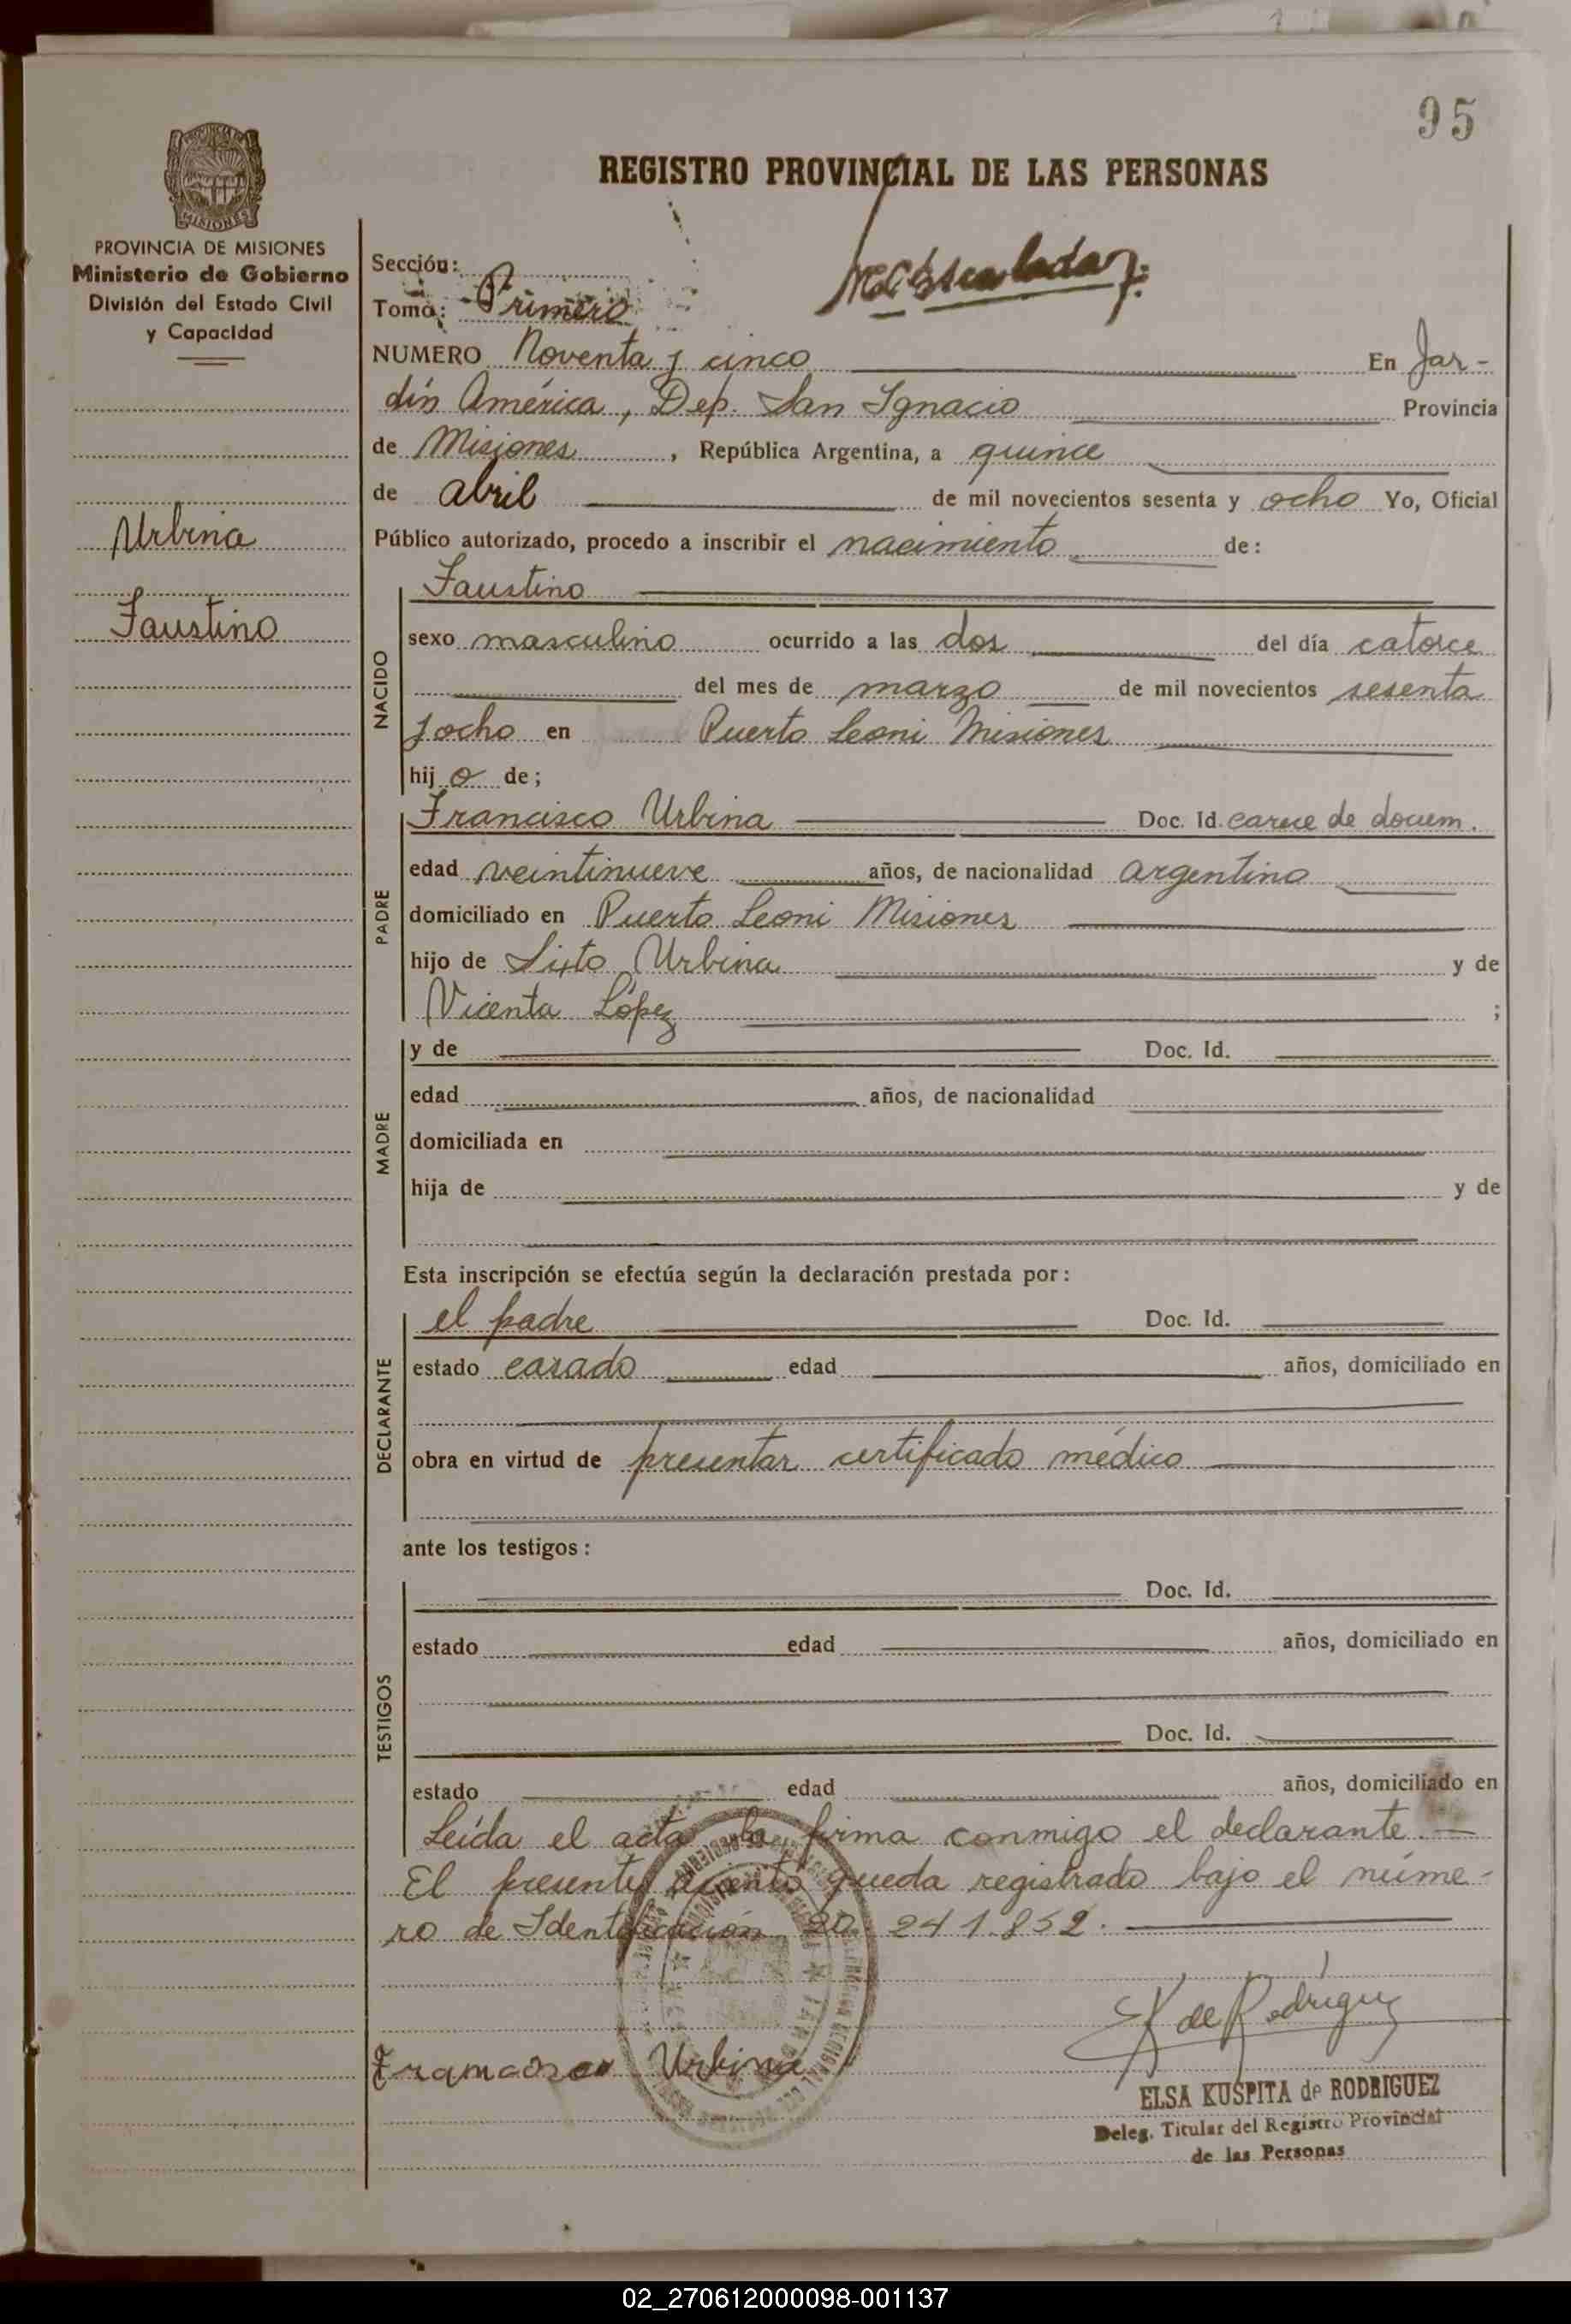 95
REGISTRO PROVINCIAL DE LAS PERSONAS
MISIONES
PROVINCIA DE MISIONES
Ministerio de Gobierno
División del Estado Civil
y Capacidad
Urbina
Faustino
Sección:
Tomo: Primero
NUMERO Noventa y cinco En Jar-
dín América, Dep. San Ignacio Provincia
de Misiones, República Argentina, a quince
de abril de mil novecientos sesenta y ocho Yo, Oficial
Público autorizado, procedo a inscribir el nacimiento de:
NACIDO
Faustino
sexo masculino ocurrido a las dos del día catorce
del mes de marzo de mil novecientos sesenta
y ocho en Puerto Leoni Misiones
hijo de;
PADRE
Francisco Urbina Doc. Id. carece de docum.
edad veintinueve años, de nacionalidad argentino
domiciliado en Puerto Leoni Misiones
hijo de Sixto Urbina y de
Vicenta López ;
MADRE
y de Doc. Id.
edad años, de nacionalidad
domiciliada en
hija de y de
Esta inscripción se efectúa según la declaración prestada por:
DECLARANTE
el padre Doc. Id.
estado casado edad años, domiciliado en
obra en virtud de presentar certificado médico
ante los testigos:
TESTIGOS
Doc. Id.
estado edad años, domiciliado en
Doc. Id.
estado edad años, domiciliado en
Leída el acta la firma conmigo el declarante.—
El presente asiento queda registrado bajo el núme-
ro de Identificación 20.241.852.
K de Rodriguez
Francisco Urbina
ELSA KUSPITA de RODRIGUEZ
Deleg. Titular del Registro Provincial
de las Personas
02_270612000098-001137